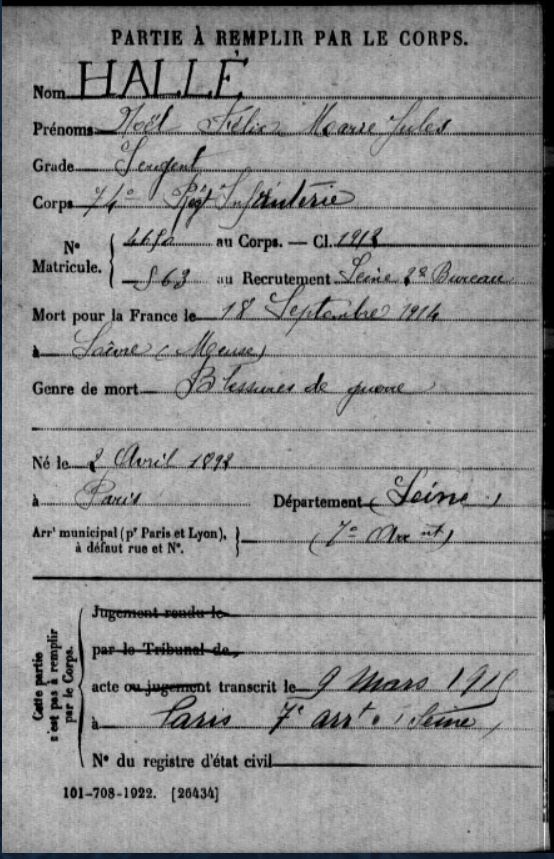 PARTIE À REMPLIR PAR LE CORPS.
Nom HALLÉ
Prénoms Noël Félix Marie Jules
Grade Sergent
Corps 74e Régt Infanterie
N° Matricule. 4650 au Corps. — Cl. 1912
563 au Recrutement Seine 2e Bureau
Mort pour la France le 18 Septembre 1914
à (Meuse)
Genre de mort Blessures de guerre
Né le 2 Avril 1892
à Paris Département (Seine)
Arrt municipal (pr Paris et Lyon), à défaut rue et N°. (7e Arrnt)
Cette partie n'est pas à remplir par le Corps.
Jugement rendu le
par le Tribunal de
acte ou jugement transcrit le 9 Mars 1915
à Paris 7e arrt (Seine)
N° du registre d'état civil
101-708-1922. [26434]